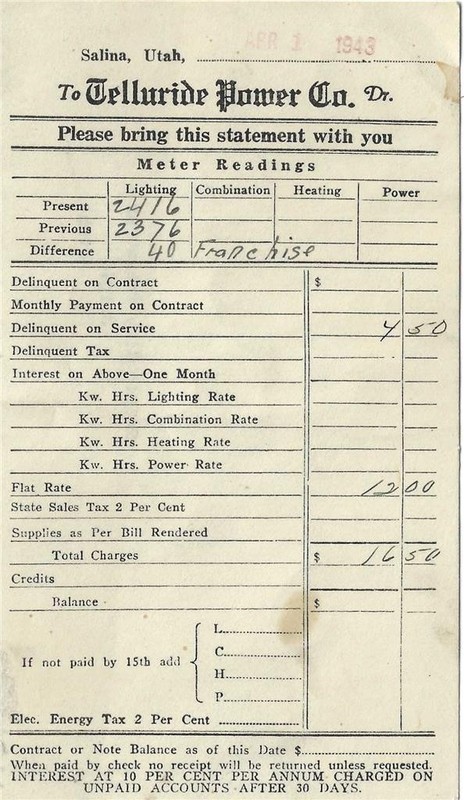 APR 1 1943
Salina, Utah,
To Telluride Power Co. Dr.
Please bring this statement with you
Meter Readings
Lighting Combination Heating Power
Present 2416
Previous 2376
Difference 40 Franchise
Delinquent on Contract $
Monthly Payment on Contract
Delinquent on Service 4 50
Delinquent Tax
Interest on Above—One Month
Kw. Hrs. Lighting Rate
Kw. Hrs. Combination Rate
Kw. Hrs. Heating Rate
Kw. Hrs. Power Rate
Flat Rate 12 00
State Sales Tax 2 Per Cent
Supplies as Per Bill Rendered
Total Charges $ 16 50
Credits
Balance $
If not paid by 15th add
L.
C.
H.
P.
Elec. Energy Tax 2 Per Cent
Contract or Note Balance as of this Date $
When paid by check no receipt will be returned unless requested.
INTEREST AT 10 PER CENT PER ANNUM CHARGED ON
UNPAID ACCOUNTS AFTER 30 DAYS.